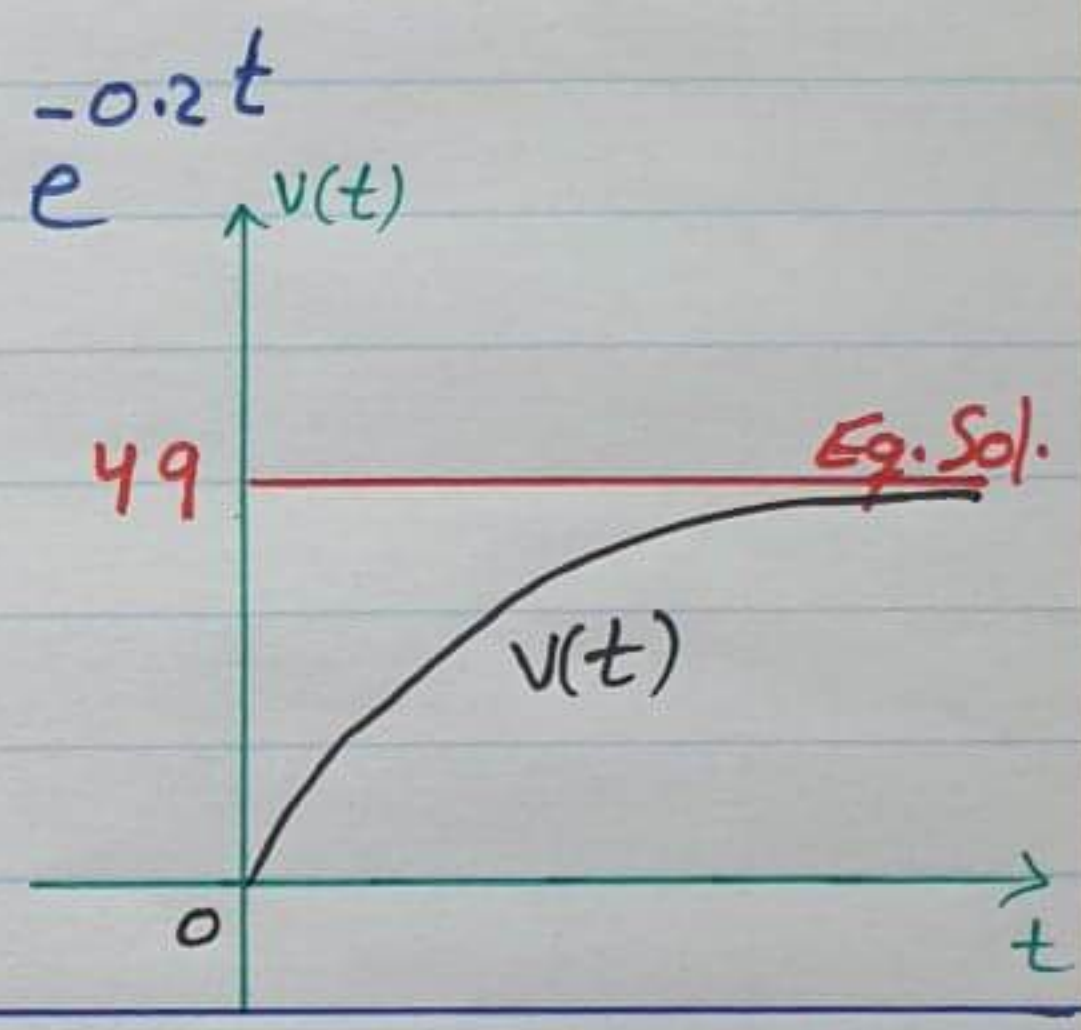 -0.2t
e
v(t)
49
Eq. Sol.
v(t)
0
t